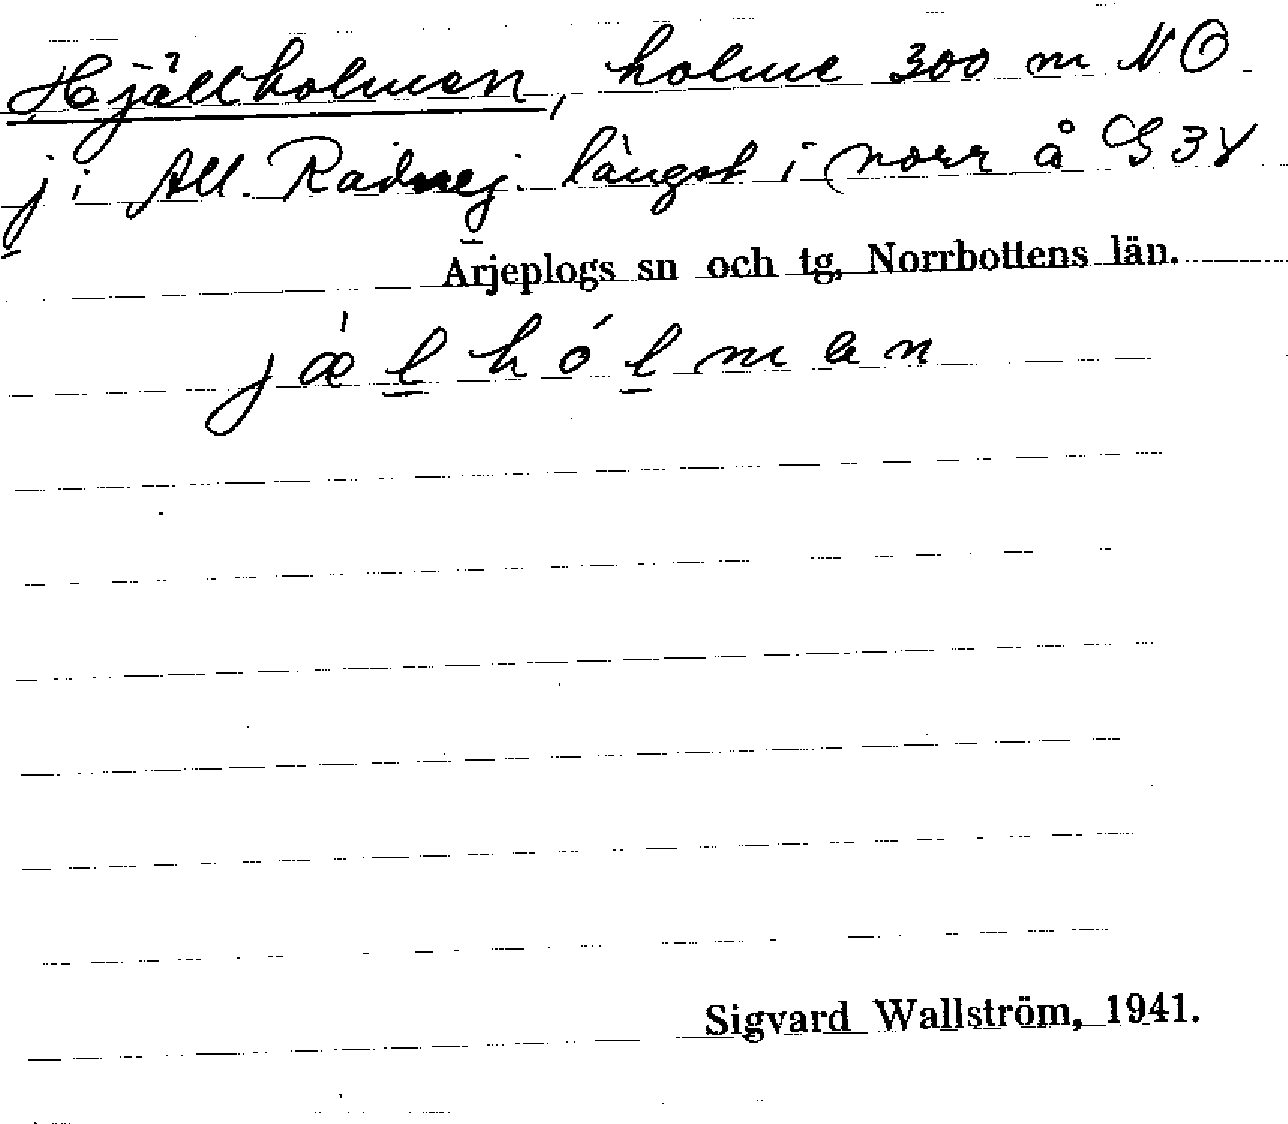 Hjällholmen, holme 300 m NO
j i All. Radnej. längst i norr å G 38
Arjeplogs sn och tg, Norrbottens län.
jæ̍l̲hól̲man
Sigvard Wallström, 1941.